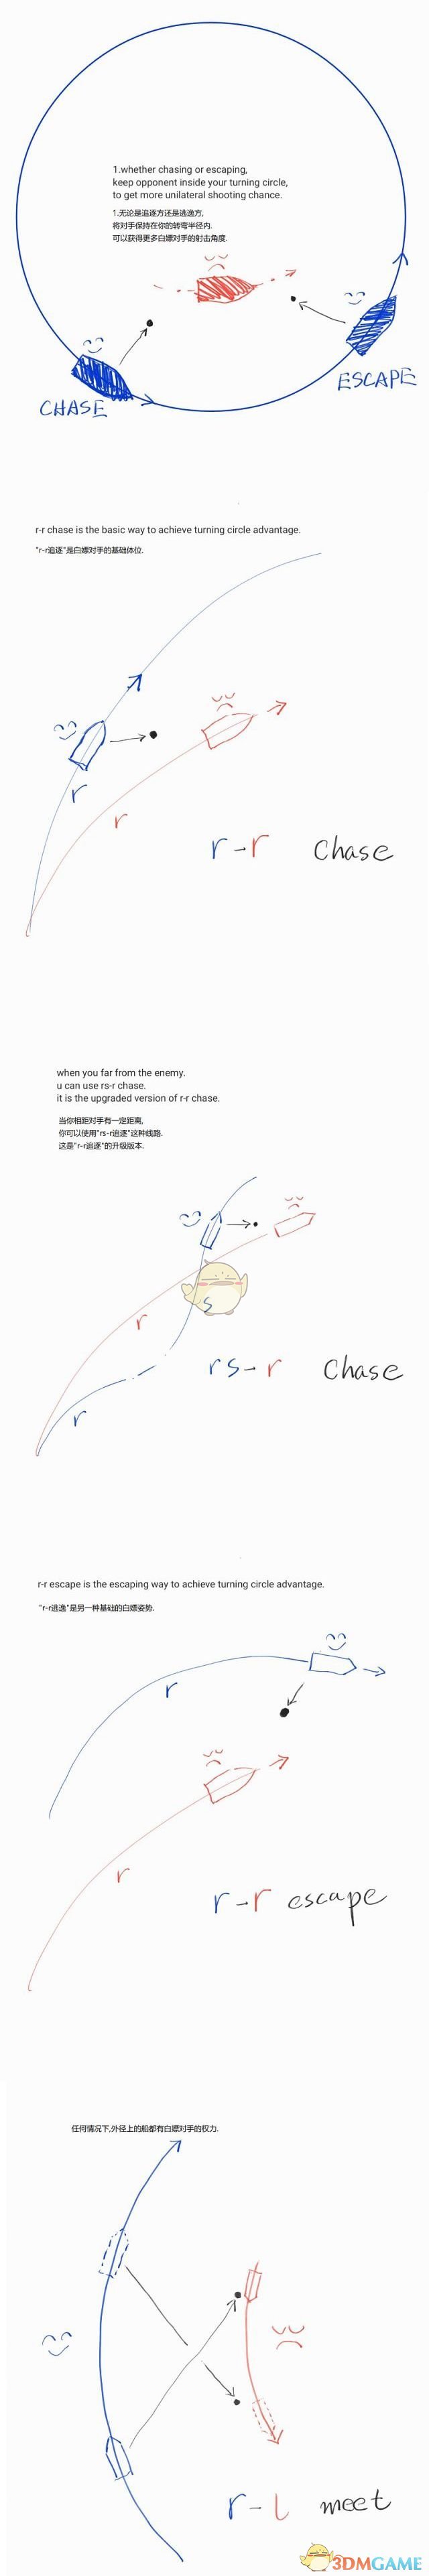 1.whether chasing or escaping,
keep opponent inside your turning circle,
to get more unilateral shooting chance.
1.无论是追逐方还是逃逸方,
将对手保持在你的转弯半径内.
可以获得更多白嫖对手的射击角度.
CHASE
ESCAPE
r-r chase is the basic way to achieve turning circle advantage.
"r-r追逐"是白嫖对手的基础体位.
r
r
r-r chase
when you far from the enemy.
u can use rs-r chase.
it is the upgraded version of r-r chase.
当你相距对手有一定距离,
你可以使用"rs-r追逐"这种线路.
这是"r-r追逐"的升级版本.
s
r
r
rs-r chase
r-r escape is the escaping way to achieve turning circle advantage.
"r-r逃逸"是另一种基础的白嫖姿势.
r
r
r-r escape
任何情况下,外径上的船都有白嫖对手的权力.
r-l meet
3DMGAME